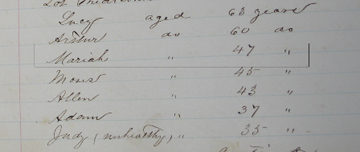 Lucy aged 63 years
Arthur do 60 do
Mariah " 47 "
Moses " 45 "
Allen " 43 "
Adam " 37 "
Judy (unhealthy) " 35 "